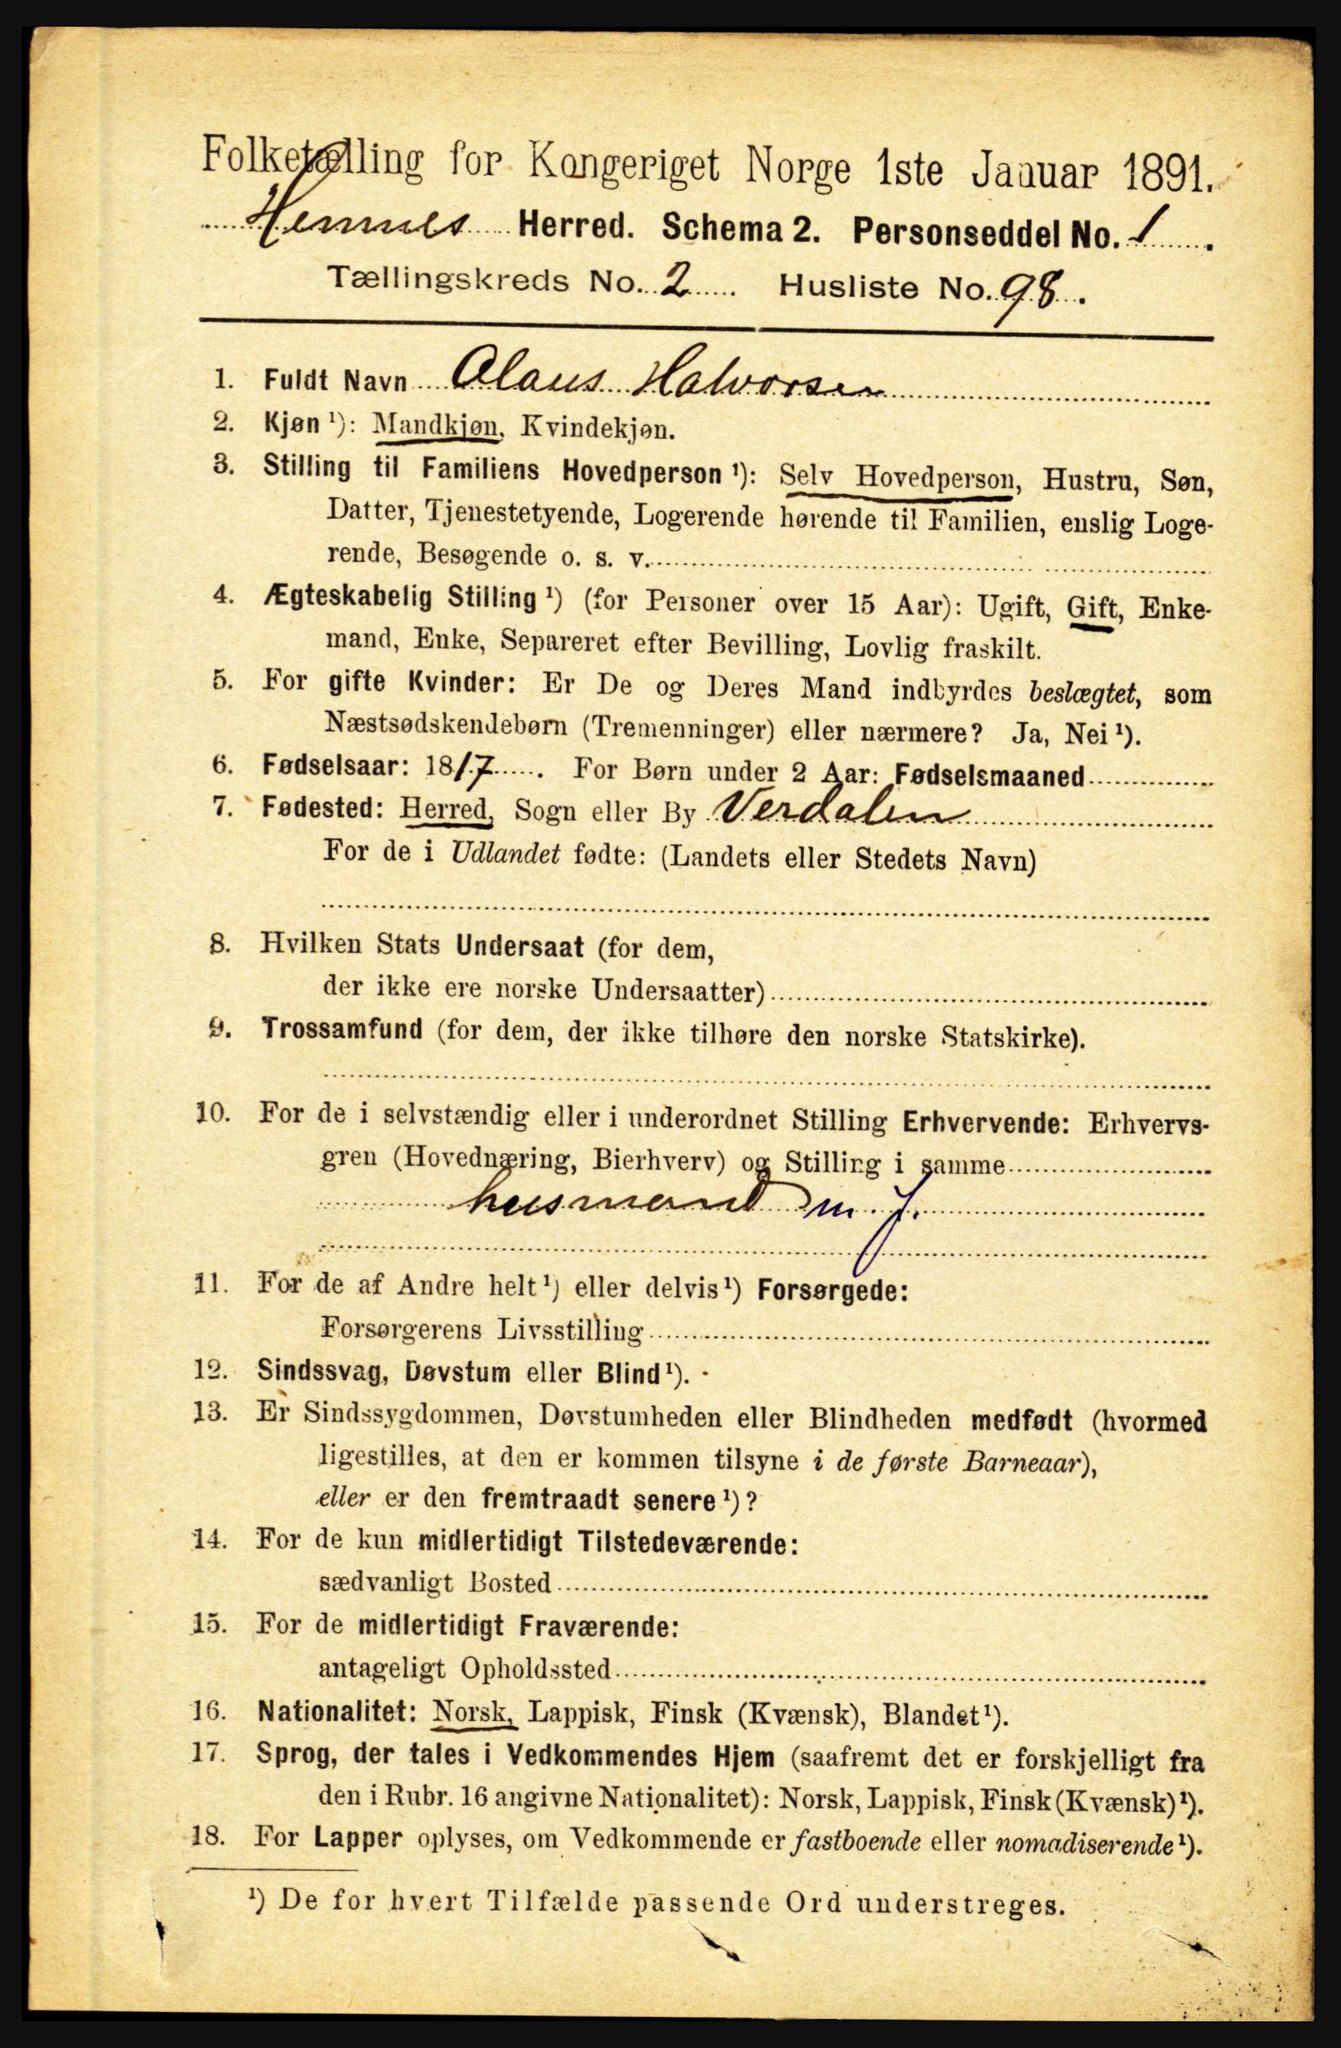 Folketælling for Kongeriget Norge 1ste Januar 1891.
Hemnes Herred. Schema 2. Personseddel No. 1.
Tællingskreds No. 2 Husliste No. 98.
1. Fuldt Navn Olaus Halvorsen
2. Kjøn ¹): Mandkjøn, Kvindekjøn.
3. Stilling til Familiens Hovedperson ¹): Selv Hovedperson, Hustru, Søn,
Datter, Tjenestetyende, Logerende hørende til Familien, enslig Loge-
rende, Besøgende o. s. v.
4. Ægteskabelig Stilling ¹) (for Personer over 15 Aar): Ugift, Gift, Enke-
mand, Enke, Separeret efter Bevilling, Lovlig fraskilt.
5. For gifte Kvinder: Er De og Deres Mand indbyrdes beslægtet, som
Næstsødskendebørn (Tremenninger) eller nærmere? Ja, Nei ¹).
6. Fødselsaar: 1817. For Børn under 2 Aar: Fødselsmaaned
7. Fødested: Herred, Sogn eller By Verdalen
For de i Udlandet fødte: (Landets eller Stedets Navn)
8. Hvilken Stats Undersaat (for dem,
der ikke ere norske Undersaatter)
9. Trossamfund (for dem, der ikke tilhøre den norske Statskirke).
10. For de i selvstændig eller i underordnet Stilling Erhvervende: Erhvervs-
gren (Hovednæring, Bierhverv) og Stilling i samme
husmand m. J.
11. For de af Andre helt ¹) eller delvis ¹) Forsørgede:
Forsørgerens Livsstilling
12. Sindssvag, Døvstum eller Blind ¹).
13. Er Sindssygdommen, Døvstumheden eller Blindheden medfødt (hvormed
ligestilles, at den er kommen tilsyne i de første Barneaar),
eller er den fremtraadt senere ¹)?
14. For de kun midlertidigt Tilstedeværende:
sædvanligt Bosted
15. For de midlertidigt Fraværende:
antageligt Opholdssted
16. Nationalitet: Norsk, Lappisk, Finsk (Kvænsk), Blandet ¹).
17. Sprog, der tales i Vedkommendes Hjem (saafremt det er forskjelligt fra
den i Rubr. 16 angivne Nationalitet): Norsk, Lappisk, Finsk (Kvænsk) ¹).
18. For Lapper oplyses, om Vedkommende er fastboende eller nomadiserende ¹).
¹) De for hvert Tilfælde passende Ord understreges.